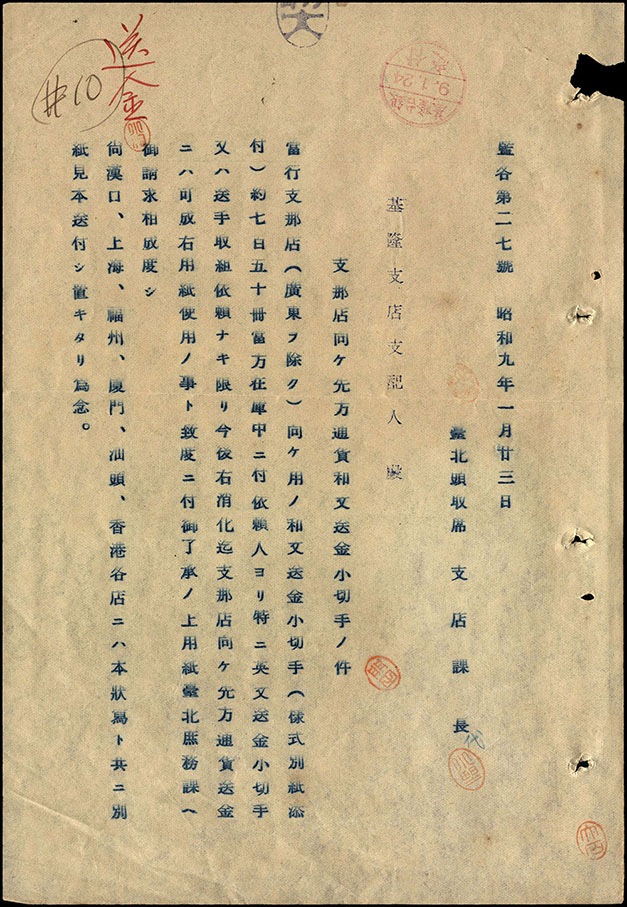 監各第二七號　昭和九年一月廿三日
臺北頭取席　支店課長
代
基隆支店支配人殿
支那店向ケ先方通貨和文送金小切手ノ件
當行支那店（廣東ヲ除ク）向ケ用ノ和文送金小切手（樣式別紙添
付）約七百五十冊當方在庫中ニ付依賴人ヨリ特ニ英文送金小切手
又ハ送手取組依賴ナキ限リ今後右消化迄支那店向ケ先方通貨送金
ニハ可成右用紙使用ノ事ト致度ニ付御了承ノ上用紙臺北庶務課ヘ
御請求相成度シ
尙漢口、上海、福州、廈門、汕頭、香港各店ニハ本狀寫ト共ニ別
紙見本送付シ置キタリ爲念。
送金
#10
9.1.24